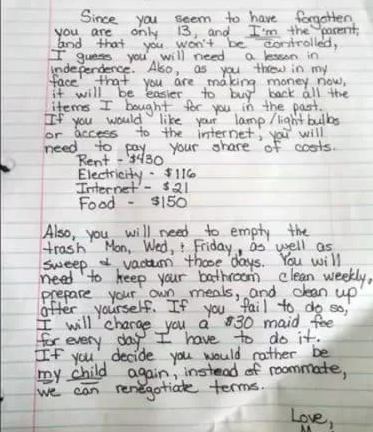 Since you seem to have forgotten
you are only 13, and I'm the parent,
and that you won't be controlled,
I guess you will need a lesson in
independence. Also, as you threw in my
face that you are making money now,
it will be easier to buy back all the
items I bought for you in the past.
If you would like your lamp/lightbulbs
or access to the internet, you will
need to pay your share of costs.
Rent - $430
Electricity - $116
Internet - $21
Food - $150
Also, you will need to empty the
trash Mon, Wed, + Friday, as well as
sweep + vacuum those days. You will
need to keep your bathroom clean weekly,
prepare your own meals, and clean up
after yourself. If you fail to do so,
I will charge you a $30 maid fee
for every day I have to do it.
If you decide you would rather be
my child again, instead of roommate,
we can renegotiate terms.
Love,